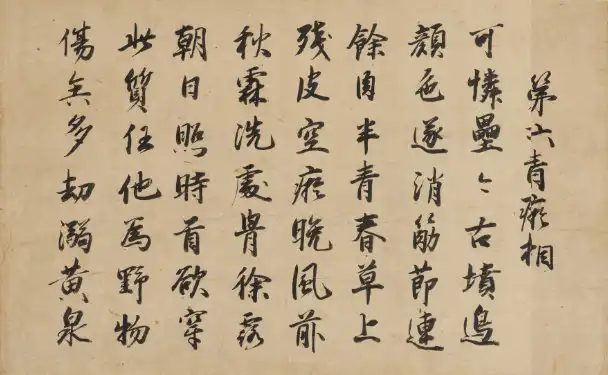 第六青瘀相
可憐壘々古墳邊
顔色遂消筋節連
餘肉半青春草上
残皮空瘀晩風前
秋霖洗處骨徐露
朝日照時首欲穿
此質任他為野物
傷矣多劫溺黄泉